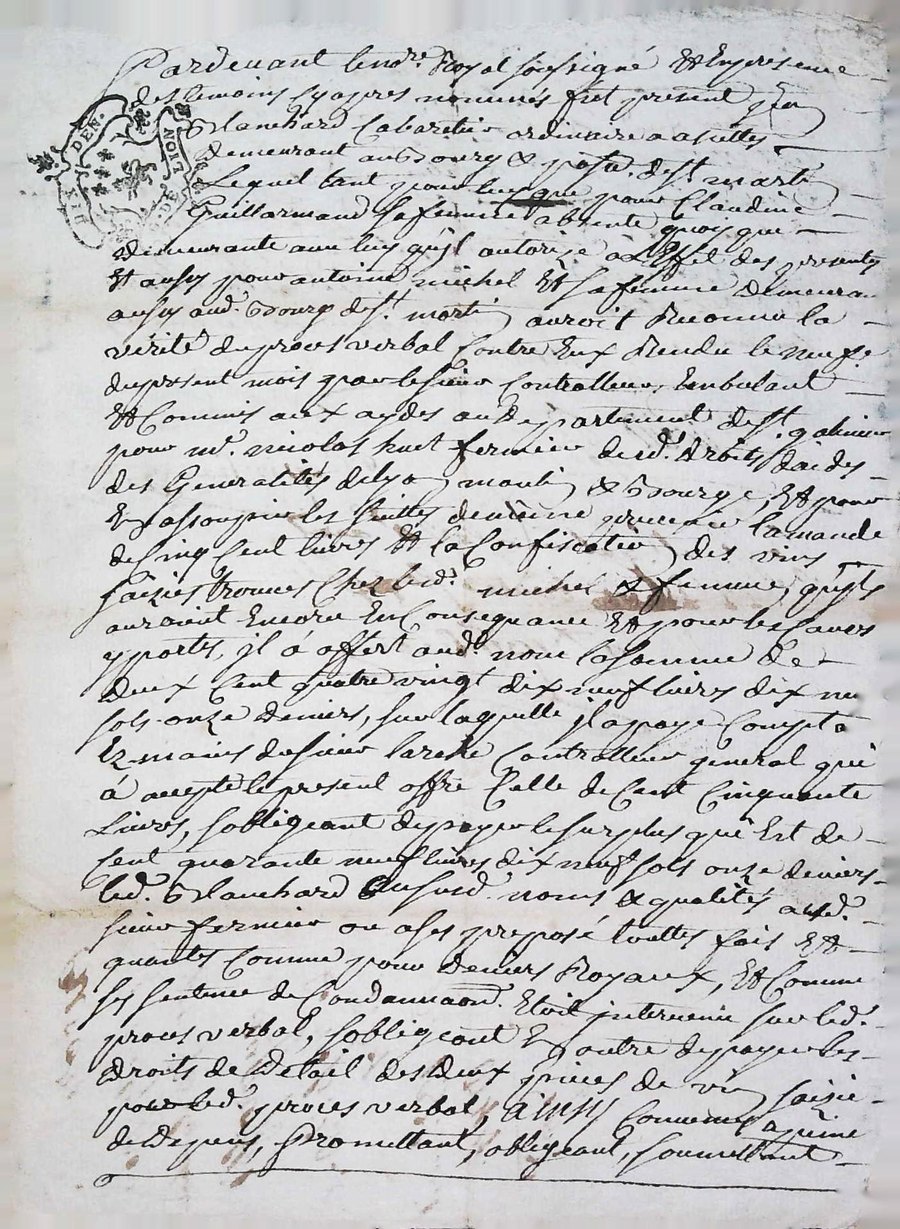 Pardevant le no.re Royal soussigné Et En presence
des temoins cy apres nommés fut present jean
Blanchard Cabaretier ordinaire a assiettes
demeurant au Bourg & parsse de st martin
Lequel tant pour luy que pour Claudine
Guillarmand sa femme absente quoy que
demeurante avec luy qu'jl autorize à l'Effet des presentes
Et aussy pour antoine michel Et sa femme demeurant
aussy aud. Bourg de st. martin auroit Reconnu la
verité du proces verbal Contre Eux Rendu le neufe
du present mois par le sieur Controlleur Embulant
Et Commis aux aydes au departement de st. galmier
pour mr. nicolas huet fermier desd. droits d'aides
des Generalités de lyon moulin & Bourge, Et pour
En assoupir les suittes demeine prevenir lamande
de Cinq Cent livres Et la Confiscation des vins
saizies trouvés Chez led. michel & femme, qu'jls
auroient Encoru En Consequance Et pour les Causes
y portés, jl à offert aud. nom la somme de
deux Cent quatre vingt dix neuf livres dix neuf
sols onze deniers, sur laquelle jl a payé Compta
Ez mains du sieur Controlleur general qui
à accepté le present offre Celle de Cent Cinquante
Livres, s'obligeant de payer le surplus qui Est de
Cent quarante neuf livres dix neuf sols onze deniers
led. Blanchard Aususd. noms & qualités aud.
sieur fermier ou a ses preposé touttes fois Et
quantes Comme pour deniers Royaux, Et Comme
sy sentence de Condamnaon. Etoit jntervenue sur led.
proces verbal, s'obligeant En outre de payer les
droits de detail des deux pieces de vin saisie
par led. proces verbal, ainsy Convenu a peine
de depens, Promettant, obligeant, soumettant
DEN.
NOIT